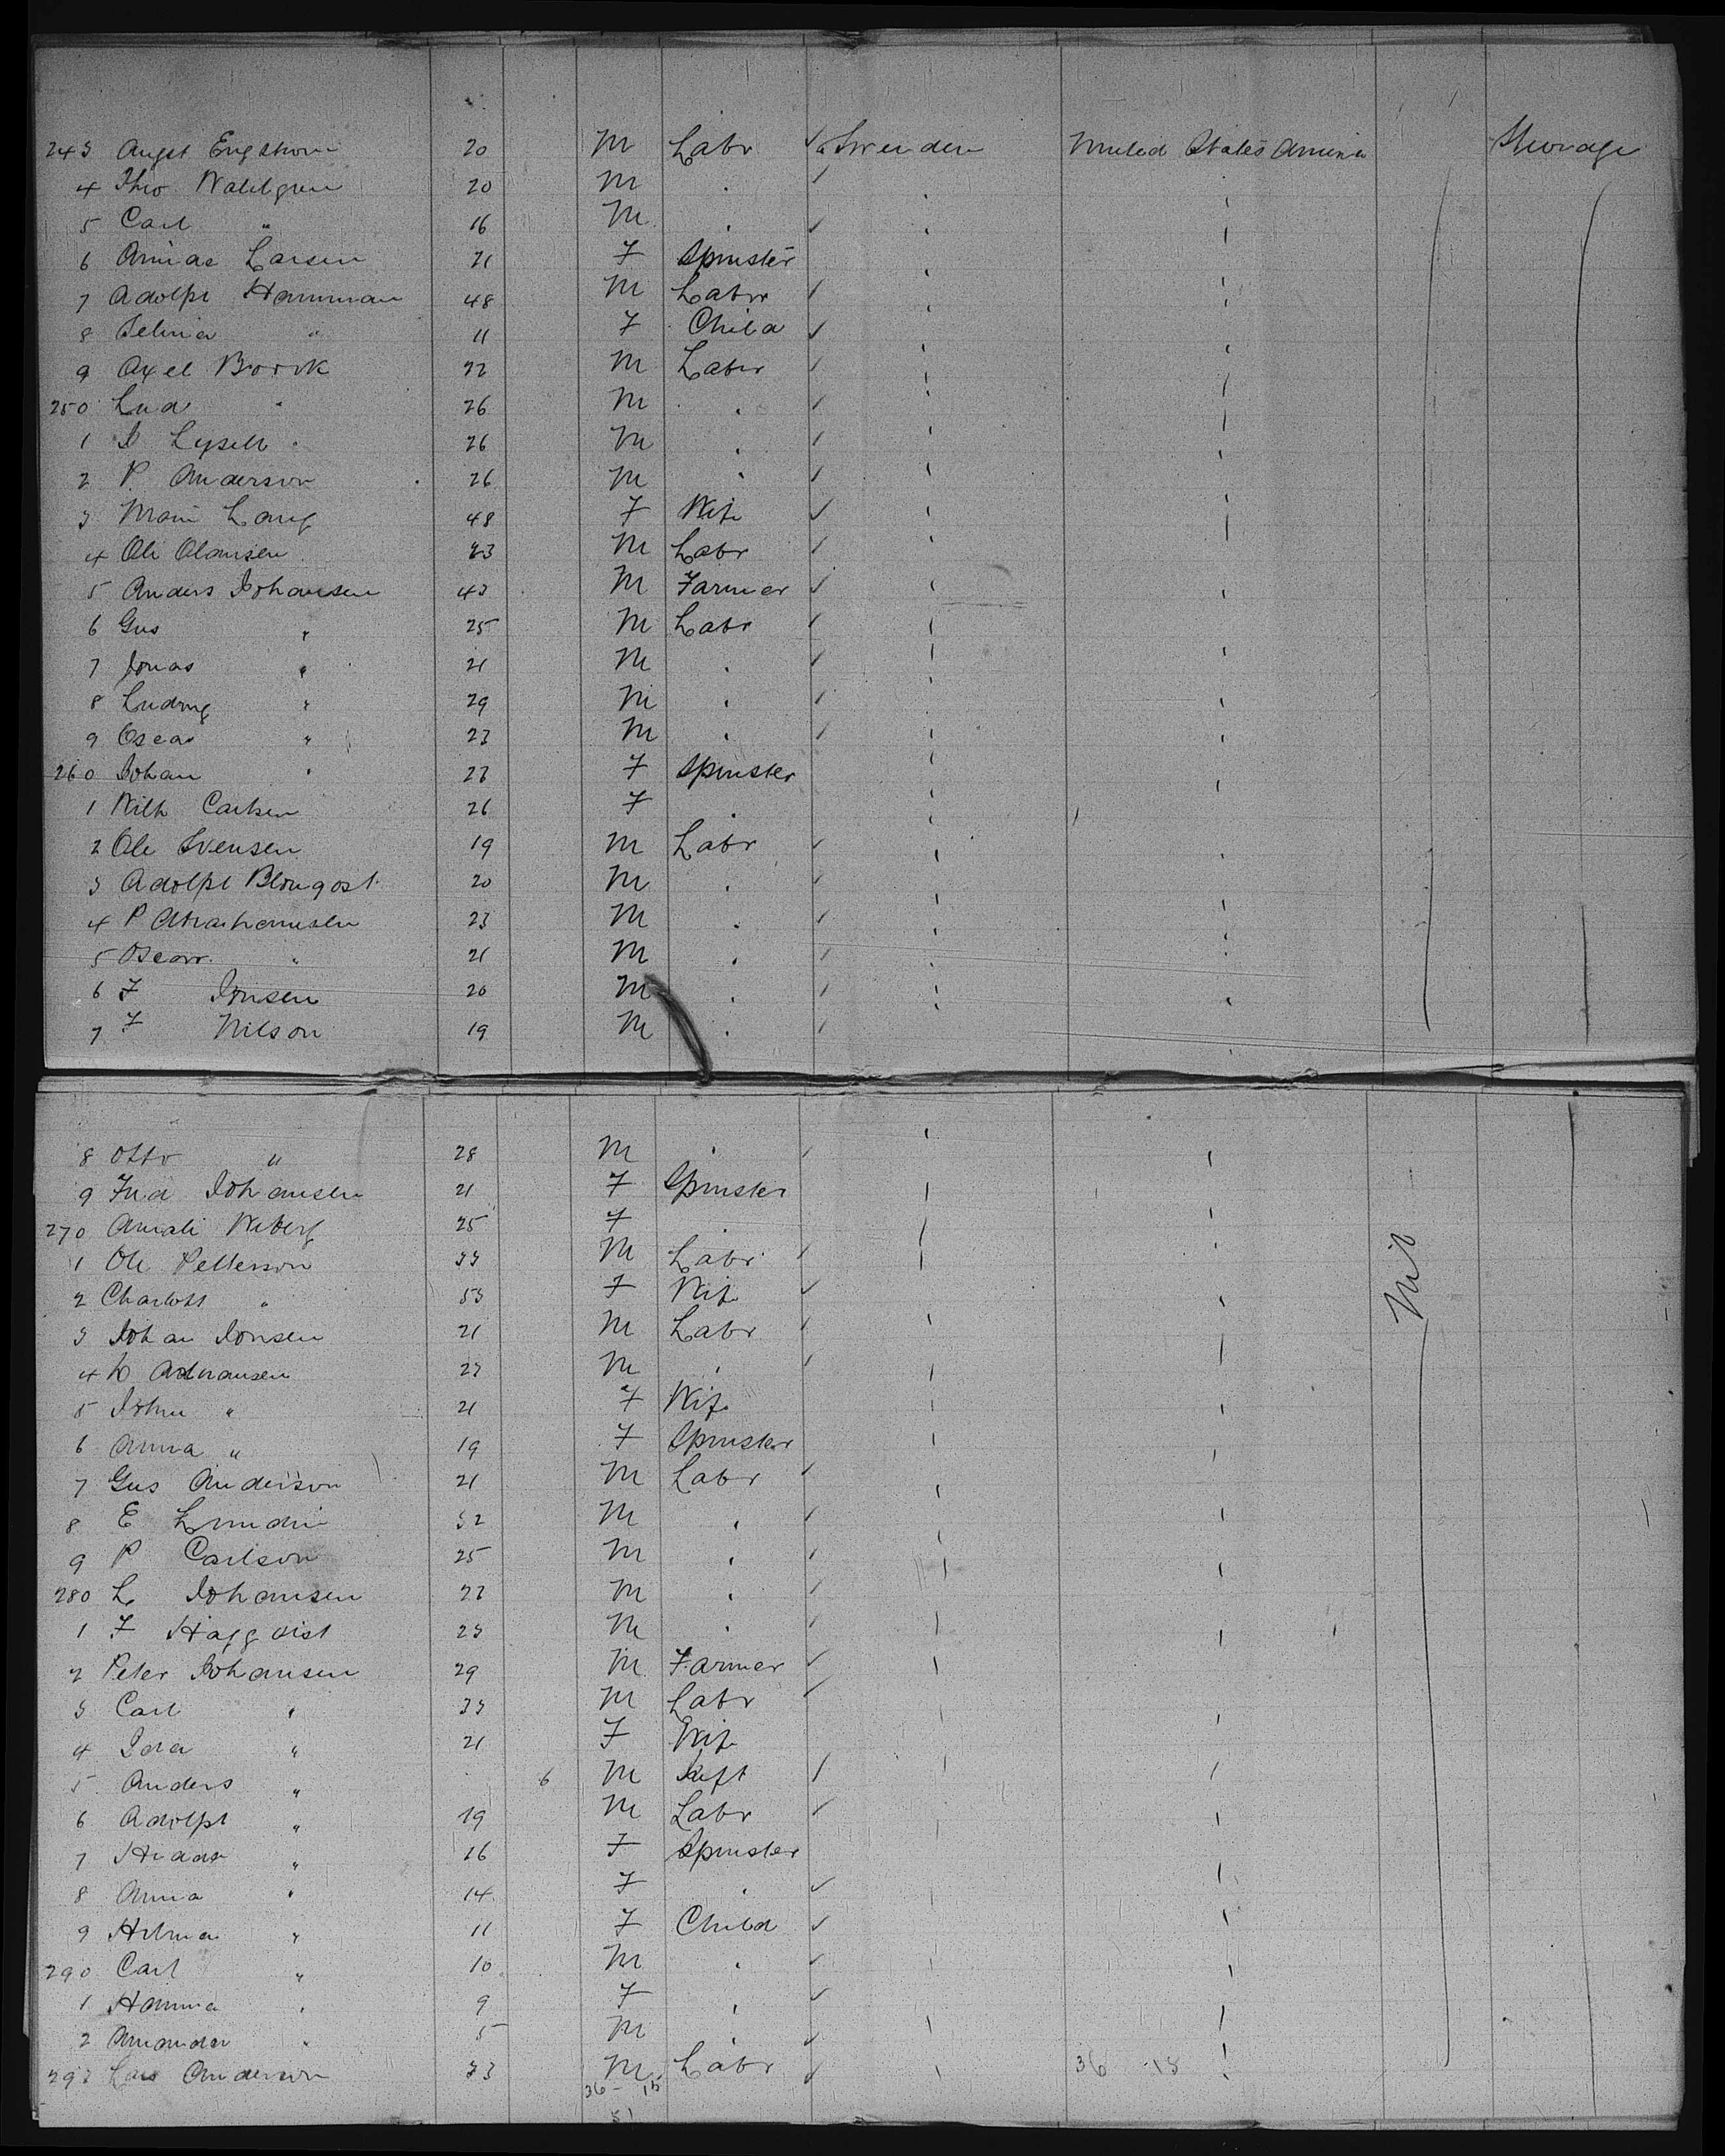 243 Augst Engstrom 20 M Labr ✓ Sweeden United States America Steerage
4 Theo Wahlgren 20 M " ✓ " "
5 Carl " 16 M " ✓ " "
6 Larsen 21 F Spinster " "
7 Adolph Hamman 48 M Labr ✓ " "
8 Selma " 11 F Child ✓ " "
9 Axel Bork 22 M Labr ✓ " "
250 Lud " 26 M " ✓ " "
1 Lysell 26 M " ✓ " "
2 P Anderson 26 M " ✓ " "
3 Lang 48 F Wife ✓ " "
4 Ole Olausen 23 M Labr ✓ " "
5 Anders Johansen 43 M Farmer ✓ " "
6 Gus " 25 M Labr ✓ " "
7 Jonas " 21 M " ✓ " "
8 Ludwig " 29 M " ✓ " "
9 Oscar " 23 M " ✓ " "
260 Johan " 23 F Spinster " "
1 Wilh Carlsen 26 F " " "
2 Ole Svensen 19 M Labr ✓ " "
3 Adolph Blomqost 20 M " ✓ " "
4 P Abrahamsen 23 M " ✓ " "
5 Oscar " 21 M " ✓ " "
6 F Jonsen 20 M " ✓ " "
7 F Nilson 19 M " ✓ " "
8 Otto " 28 M " ✓ " "
9 Johansen 21 F Spinster " "
270 Amali Wiberg 25 F " " "
1 Ole Petterson 33 M Labr ✓ " "
2 Charlott " 53 F Wife ✓ " Nil
3 Johan Jonsen 21 M Labr ✓ " "
4 23 M " ✓ " "
5 " 21 F Wife " "
6 Anna " 19 F Spinster " "
7 Gus Anderson 21 M Labr ✓ " "
8 E Lundin 32 M " ✓ " "
9 P Carlson 25 M " ✓ " "
280 L Johansen 23 M " ✓ " "
1 F Haggqist 23 M " ✓ " "
2 Peter Johansen 29 M Farmer ✓ " "
3 Carl " 33 M Labr ✓ " "
4 Ida " 21 F Wife " "
5 Anders " 6 M Inft ✓ " "
6 Adolph " 19 M Labr ✓ " "
7 " 16 F Spinster " "
8 Anna " 14 F " ✓ " "
9 Hilma " 11 F Child ✓ " "
290 Carl " 10 M " ✓ " "
1 Hanna " 9 F " ✓ " "
2 Amanda " 5 M " ✓ " "
293 Lars Anderson 33 M Labr ✓ " 36 15 "
36 - 15
51